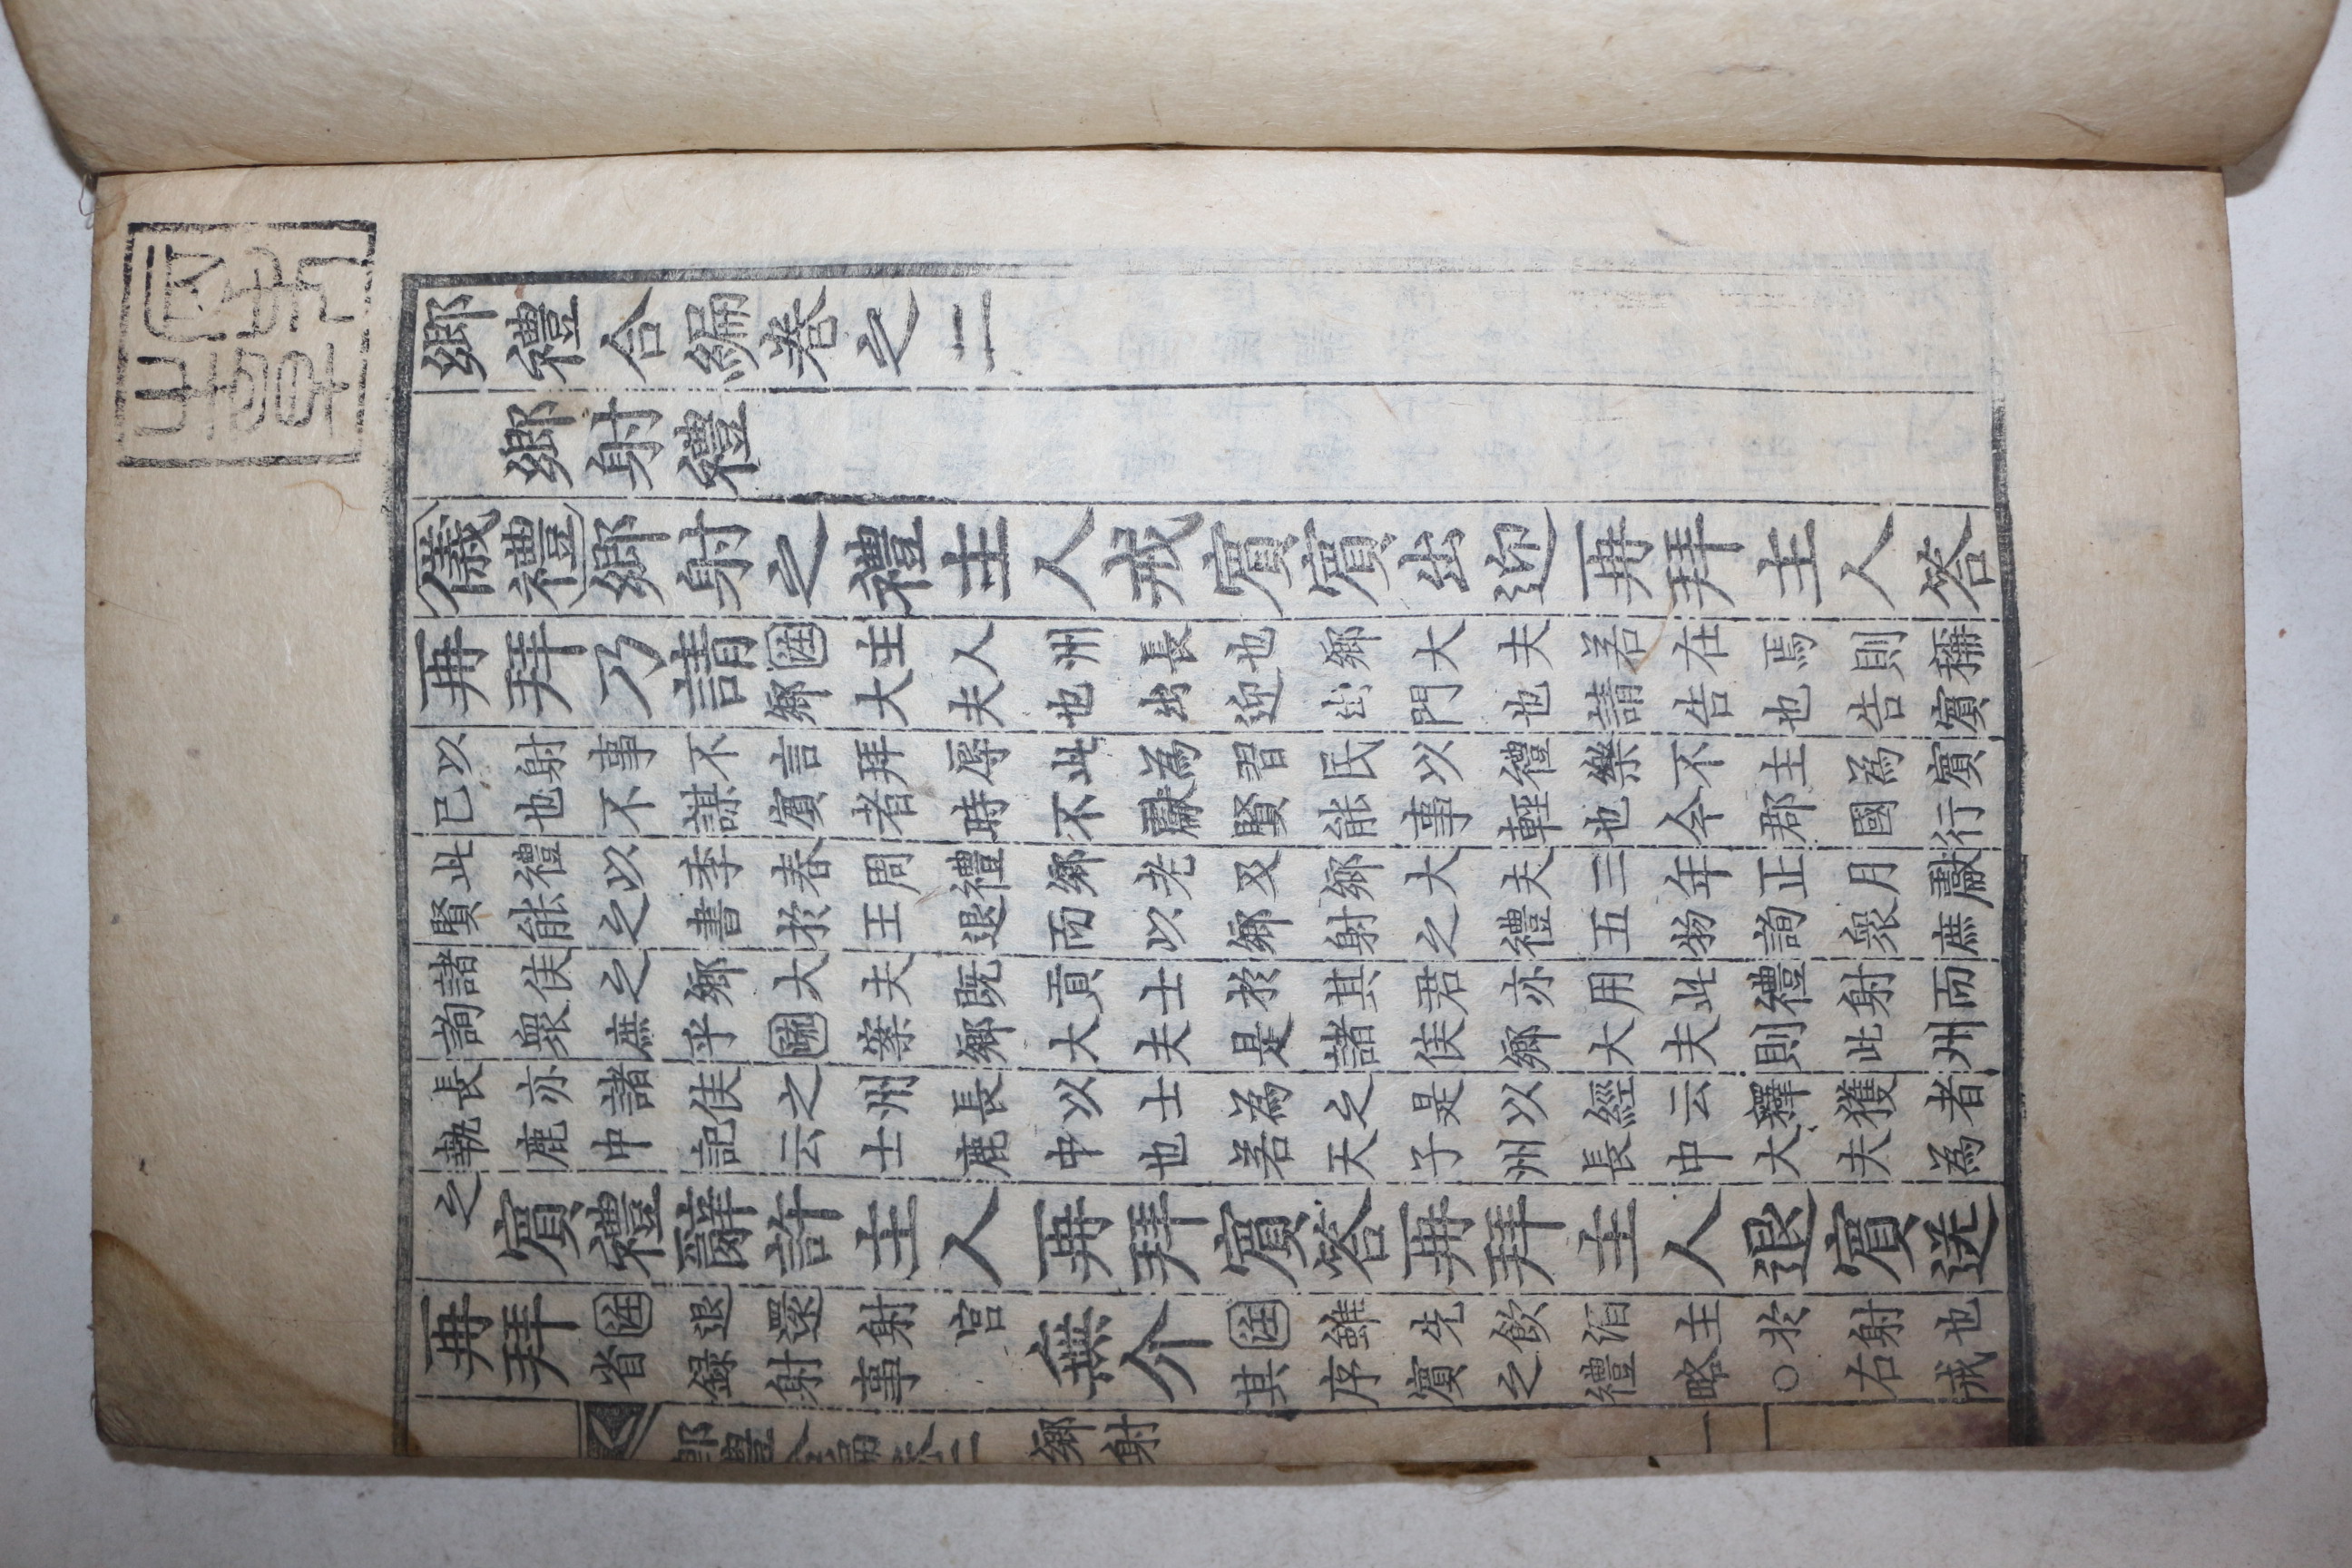 鄉禮合編卷之二
鄉射禮
儀禮鄉射之禮主人戒賓賓出迎再拜主人答
再拜乃請注主人州長也鄉大夫若在焉則稱
鄉大夫也出迎出門也請告也告賓
以射事不言拜辱此為習民以禮樂不主為賓
已也不謀賓者時不獻賢能事輕也今郡國行
此禮以季春周禮鄉老及鄉大夫三年正月獻
賢能之書於王退而以鄉射之禮五物詢衆庶
諸侯之鄉大夫既貢士於其君亦用此禮射而
詢衆庶乎疏案鄉大夫是諸侯鄉大夫則此州
長亦諸侯之州長以士為之是以經云釋獲者
執鹿中記云士鹿中也若天子州長中大夫為
之賓禮辭許主人再拜賓答再拜主人退賓送
再拜注退還射宮省録射事無介注雖先飲酒主於射也其序賓之禮略○右戒
鄉禮合編卷二 鄉射 一